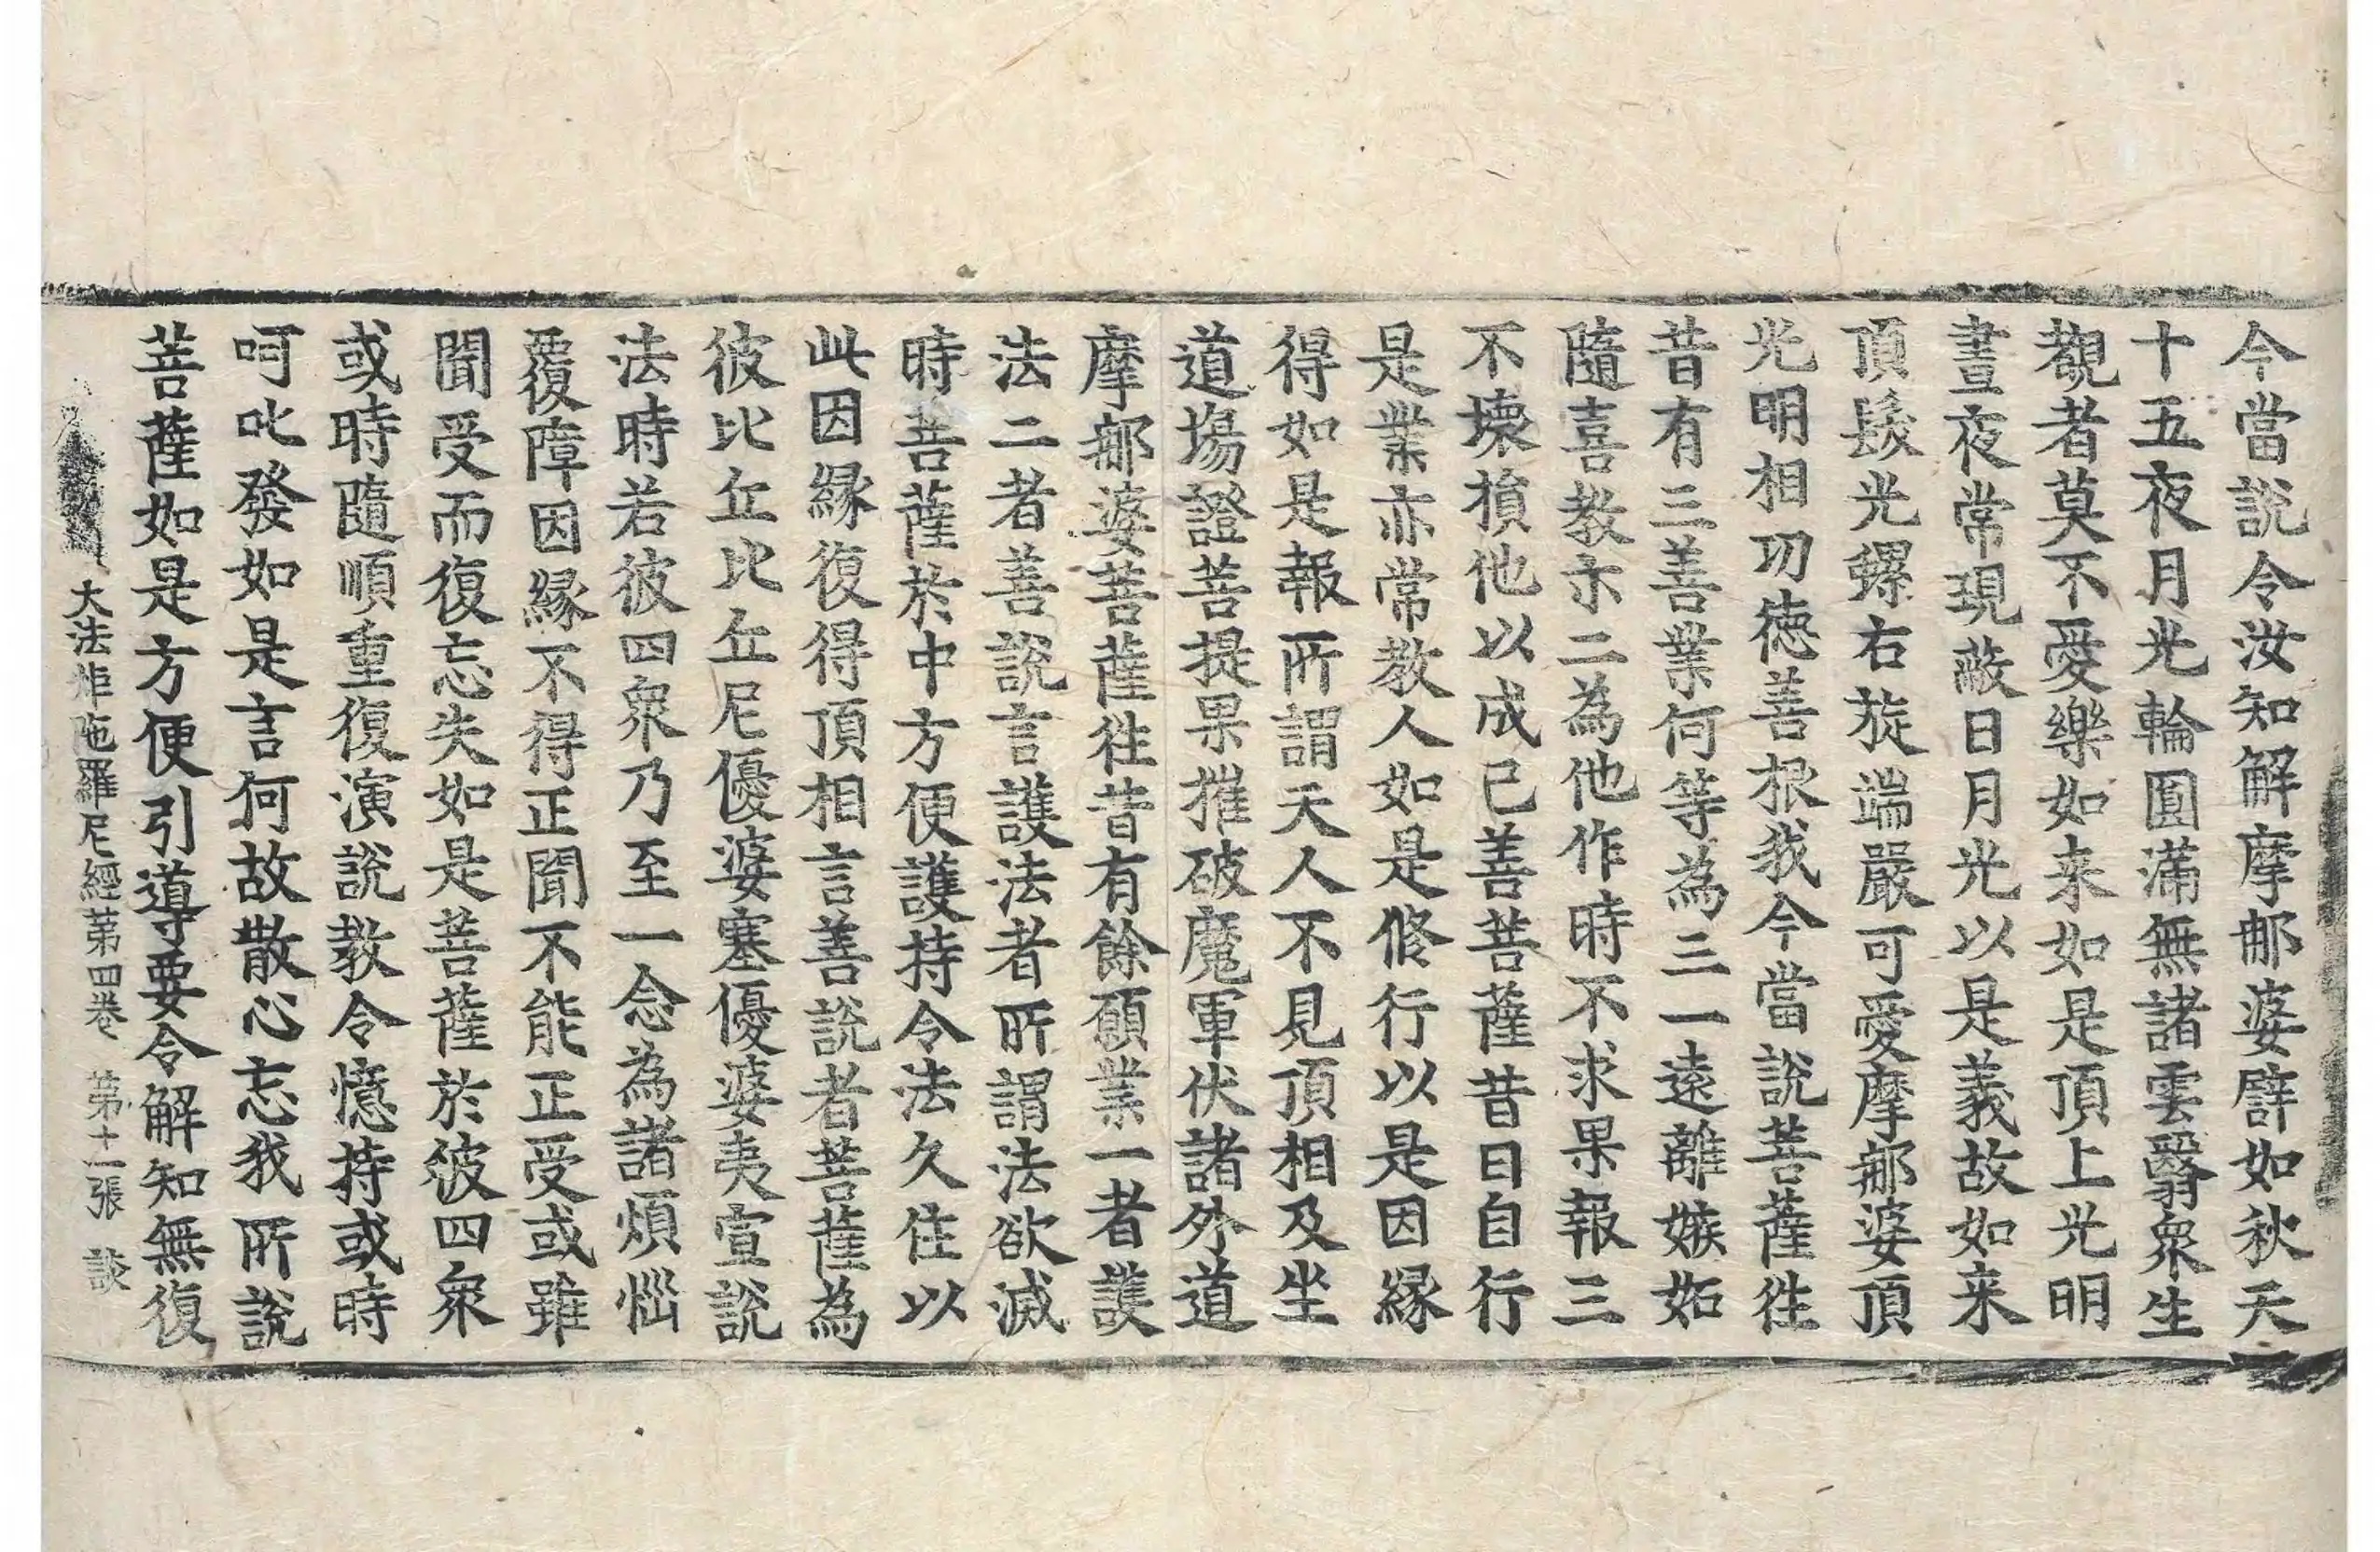 今當說令汝知解摩那婆譬如秋天
十五夜月光輪圓滿無諸雲翳衆生
覩者莫不愛樂如来如是頂上光明
晝夜常現蔽日月光以是義故如来
頂髮光螺右旋端嚴可愛摩那婆頂
光明相功德善根我今當說菩薩往
昔有三善業何等為三一遠離嫉妬
隨喜教示二為他作時不求果報三
不壞損他以成己善菩薩昔日自行
是業亦常教人如是修行以是因緣
得如是報所謂天人不見頂相及坐
道場證菩提果摧破魔軍伏諸外道
摩那婆菩薩往昔有餘願業一者護
法二者善說言護法者所謂法欲滅
時菩薩於中方便護持令法久住以
此因緣復得頂相言善說者菩薩為
彼比丘比丘尼優婆塞優婆夷宣說
法時若彼四衆乃至一念為諸煩惱
覆障因緣不得正聞不能正受或雖
聞受而復忘失如是菩薩於彼四衆
或時隨順重復演說教令憶持或時
呵叱發如是言何故散心忘我所說
菩薩如是方便引導要令解知無復
大法炬陁羅尼經第四卷 第十一張 談